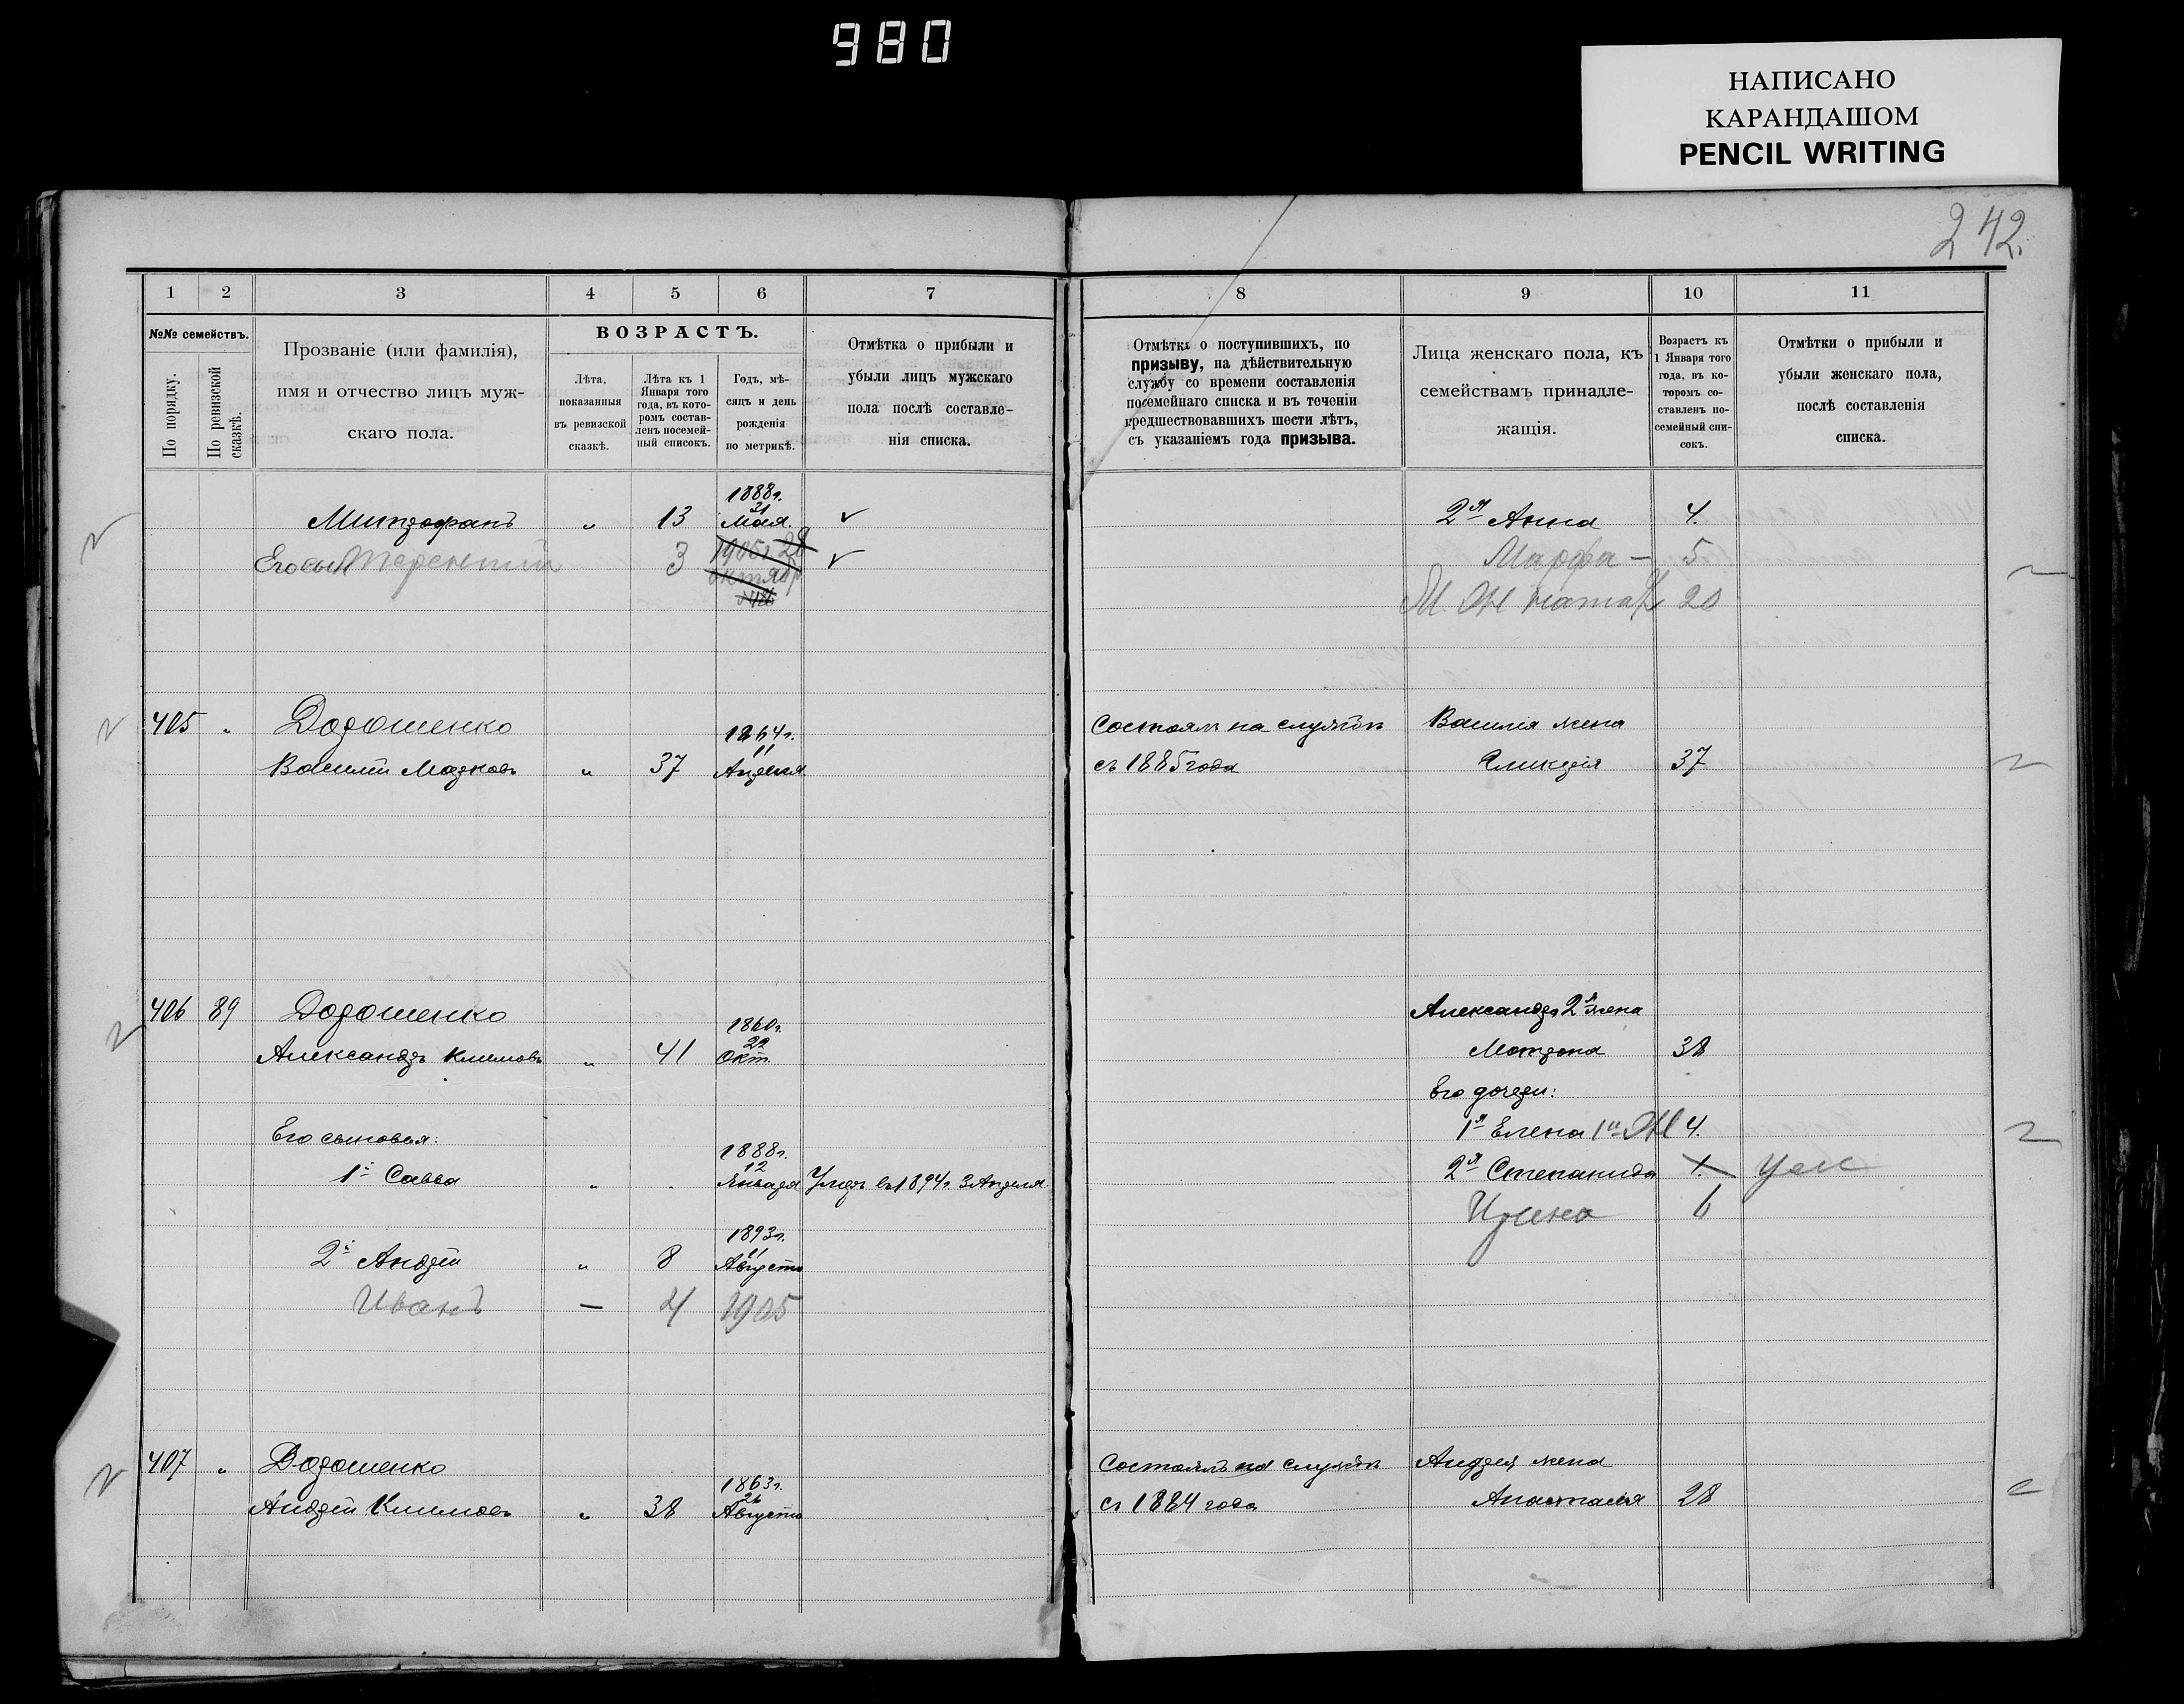 980
НАПИСАНО
КАРАНДАШОМ
PENCIL WRITING
242.
1 2 3 4 5 6 7 8 9 10 11
№№ семействъ.
По порядку.
По ревизской сказкѣ.
Прозваніе (или фамилія),
имя и отчество лицъ муж-
скаго пола.
ВОЗРАСТЪ.
Лѣта,
показанныя
въ ревизской
сказкѣ.
Лѣта къ 1
Января того
года, въ кото-
ромъ состав-
ленъ посемей-
ный списокъ.
Годъ, мѣ-
сяцъ и день
рожденія
по метрикѣ.
Отмѣтка о прибыли и
убыли лицъ мужскаго
пола послѣ составле-
нія списка.
Отмѣтка о поступившихъ, по
призыву, на дѣйствительную
службу со времени составленія
посемейнаго списка и въ теченіи
предшествовавшихъ шести лѣтъ,
съ указаніемъ года призыва.
Лица женскаго пола, къ
семействамъ принадле-
жащія.
Возрастъ къ
1 Января того
года, въ ко-
торомъ со-
ставленъ по-
семейный спи-
сокъ.
Отмѣтки о прибыли и
убыли женскаго пола,
послѣ составленія
списка.
1888 г.
Митрофанъ „ 13 31 Мая. ✓ 2я Анна 4.
Его сын Терентий 3 1905 г 28 октяб ✓ Марфа — 5
М. Ж 20
405 „ Дорошенко 1864 г. Состоялъ на службѣ Василія жена
Василій Марковъ „ 37 11 Апрѣля съ 1885 года Гликерія 37
406 89 Дорошенко 1860 г. Александра 2я жена
Александръ Климовъ „ 41 22 Окт. Мотрона 38
Его дочери:
Его сыновья: 1я Елена 4.
1888 г.
1й Савва „ 12 Января Умеръ въ 1894 г. 3 Апрѣля 2я Степанида 1. ум
Ирина 6
1893 г.
2й Андрей „ 8 11 Августа
Иванъ — 4 1905
407 „ Дорошенко 1863 г. Состоялъ на службѣ Андрея жена
Андрей Климовъ „ 38 26 Августа съ 1884 года Анастасія 28